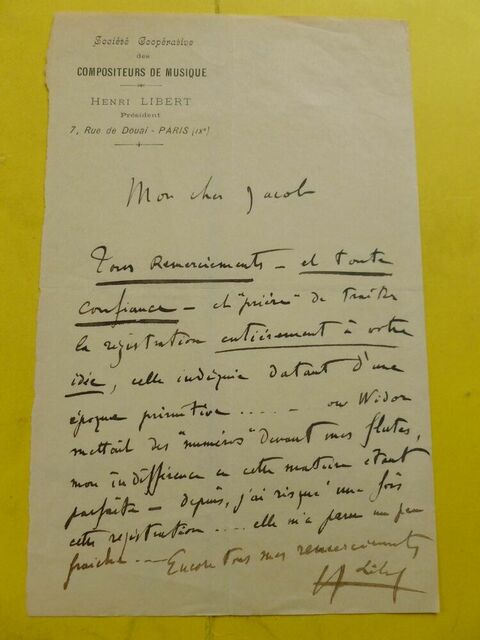 Société Coopérative
des
COMPOSITEURS DE MUSIQUE
HENRI LIBERT
Président
7, Rue de Douai - PARIS (IXe)
Mon cher Jacob
Tous Remerciements – et toute
confiance – et "prière" de traiter
la registration entièrement à votre
idée, celle indiquée datant d'une
époque primitive ..... – ou Widor
mettait des "numéros" devant mes flutes,
mon indifférence en cette matière étant
parfaite – depuis, j'ai risqué une fois
cette registration .... elle m'a parue un peu
fraiche – Encore tous mes remerciements
H Libert